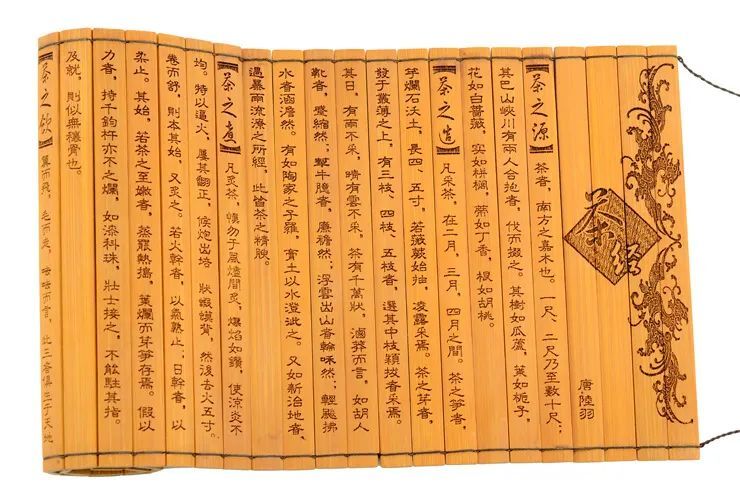 茶經
唐陸羽
【茶之源】茶者，南方之嘉木也。一尺、二尺乃至數十尺；
其巴山峽川有兩人合抱者，伐而掇之。其樹如瓜蘆，葉如梔子，
花如白薔薇，實如栟櫚，蒂如丁香，根如胡桃。
【茶之造】凡采茶，在二月、三月、四月之間。茶之筍者，
爛石沃土，長四、五寸，若薇蕨始抽，凌露采焉。茶之芽者，
發于叢薄之上，有三枝、四枝、五枝者，選其中枝穎拔者采焉。
其日，有雨不采，晴有雲不采，茶有千萬狀，鹵莽而言，如胡人
靴者，蹙縮然；犎牛臆者，廉襜然；浮雲出山者輪囷然；輕飈拂
水者涵澹然。有如陶家之子羅，膏土以水澄泚之。又如新治地者，
遇暴雨流潦之所經，此皆茶之精腴。
【茶之煮】凡炙茶，慎勿于風燼間炙，熛焰如鑽，使涼炎不
均。特以逼火，屢其翻正，候炮出培 狀蝦蟆背，然後去火五寸。
卷而舒，則本其始，又炙之。若火幹者，以氣熟止；日幹者，以
柔止。其始，若茶之至嫩者，蒸罷熱搗，葉爛而芽筍存焉。假以
力者，持千鈞杵亦不之爛，如漆科珠，壯士接之，不能駐其指。
及就，則似無穰骨也。
【茶之飲】翼而飛，毛而走，呿而言，此三者俱生于天地